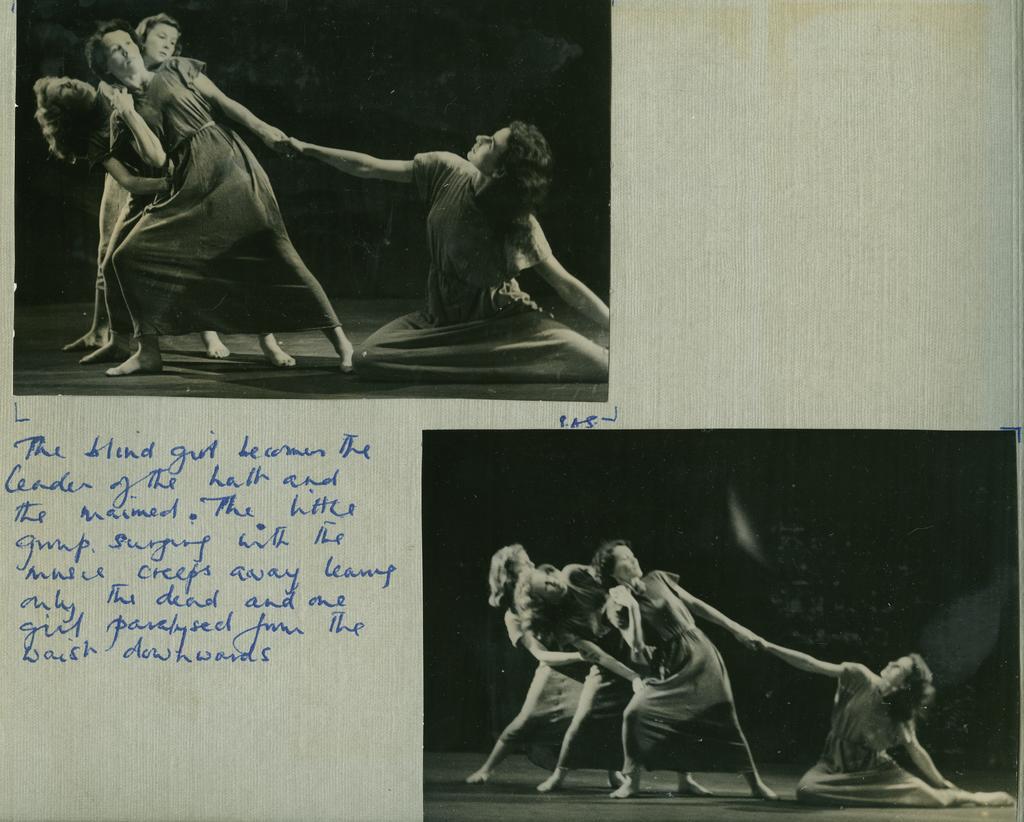 P.A.S.
The blind girl becomes the
leader of the halt and
the maimed. The little
group, surging with the
music creeps away leaving
only the dead and one
girl paralysed from the
waist downwards